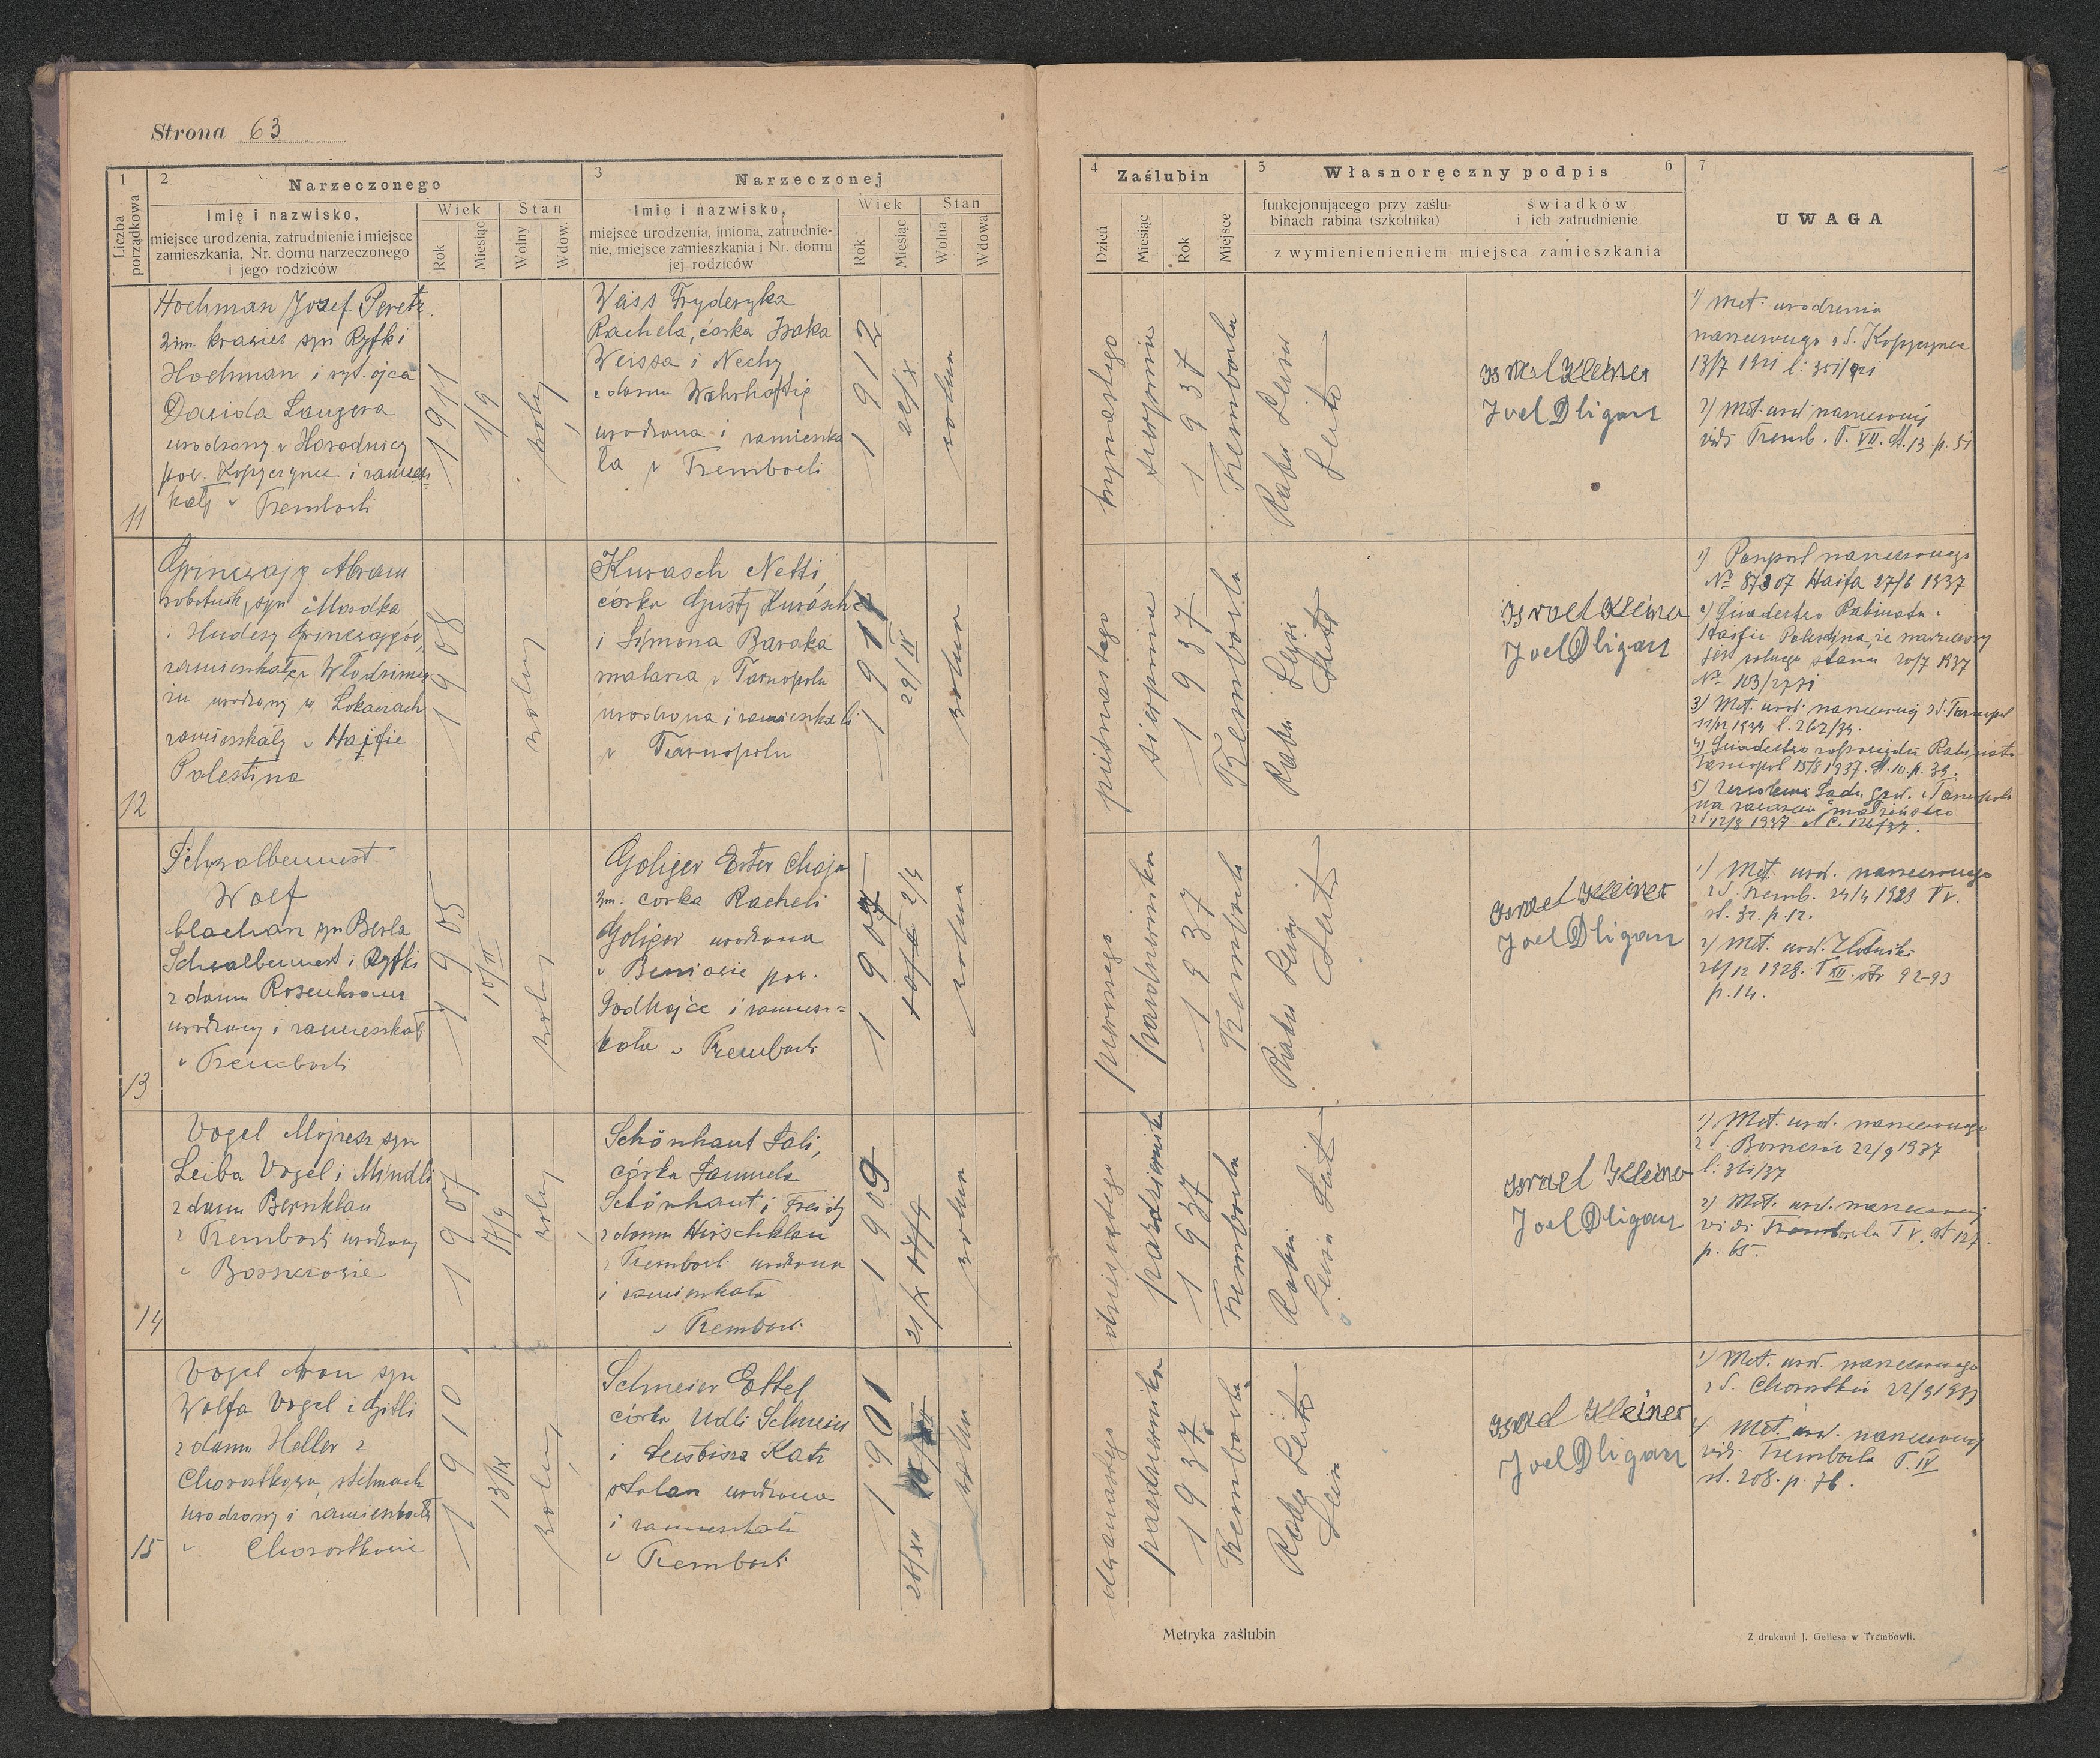 Strona 63
1
2
3
Narzeczonego
Narzeczonej
Liczba porządkowa
Imię i nazwisko,
miejsce urodzenia, zatrudnienie i miejsce
zamieszkania, Nr. domu narzeczonego
i jego rodziców
Wiek
Stan
Rok
Miesiąc
Wolny
Wdow.
Imię i nazwisko,
miejsce urodzenia, imiona, zatrudnie-
nie, miejsce zamieszkania i Nr. domu
jej rodziców
Wiek
Stan
Rok
Miesiąc
Wolna
Wdowa
4
Zaślubin
5
Własnoręczny podpis
6
7
Dzień
Miesiąc
Rok
Miejsce
funkcjonującego przy zaślu-
binach rabina (szkolnika)
świadków
i ich zatrudnienie
z wymienienieniem miejsca zamieszkania
UWAGA
11
Hochman Józef Peretz
zim. krawiec syn Ryfki
Hochman i
ojca
Dawida Laugera
urodzony w Horodnicy
pow. Kopyczynce i zamiesz-
kały w Trembowli
1911
1/9
wolny
Weiss Fryderyka
Rachela, córka Izaka
Weissa i Nechy
z domu Wahrhaftig
urodzona i zamieszka
ła w Trembowli
1912
wolna
sierpnia
1937
Trembowla
Rabin
Israel Kleiner
Joel Dligacz
1) Met. urodzenia
narzeczonego z d. Kopyczynce
13/7 1921 l: 351/921
2) Met. urod narzeczonej
vidi Tremb. T. VII. st. 13. p. 51
12
Grincwajg Abram
robotnik, syn Mordka
i Hudesy Grincwajgów,
zamieszkałych Włodzimie
rzu urodzony w Łokaczach
zamieszkały w Hajfie
Palestina
1908
wolny
Kurasch Netti,
córka Gusty Kurasch
i Simona Baraka
malarza w Tarnopolu
urodzona i zamieszkała
w Tarnopolu
1911
29/IV
wolna
piętnastego
sierpnia
1937
Trembowla
Rabin
Israel Kleiner
Joel Dligacz
1) Paszport narzeczonego
Nº 87307 Haifa 27/6 1937
2) Świadectwo Rabinatu w
Haifie Palestyna, że narzeczony
jest wolnego stanu 20/7 1937
Nº 103/2771
3) Met. urod. narzeczonej z d. Tarnopol
11/12 1934 l. 262/34.
4) Świadectwo zapowiedzi Rabinatu
Tarnopol 15/8 1937. st. 10. p. 39.
5) Zezwolenie Sądu grod. w Tarnopolu
na zawarcie małżeństwa
z d 12/8 1937 N C. 126/37.
13
Schwalbennest
Wolf
blacharz syn Berla
Schwalbennest i Ryfki
z domu Rosenkranz
urodzony i zamieszkały
w Trembowli
1905
10/II
wolny
Goliger Ester Chaja
zm. córka Racheli
Goliger urodzona
w Beniowie pow.
Podhajce i zamiesz=
kała w Trembowli
1907
2/4
wolna
pierwszego
października
1937
Trembowla
Rabin
Israel Kleiner
Joel Dligacz
1) Met. urod. narzeczonego
z d. Tremb. 24/4 1923 T v.
st. 32. p. 12.
2) Met. urod. Złotniki
26/12 1928. T XII. str 92-93
p. 14.
14
Vogel Mojżesz syn
Leiba Vogel i Mindli
z domu Bernklau
z Trembowli urodzony
w Borszczowie
1907
17/9
wolny
Schönhaut Sali,
córka Samuela
Schönhaut i Freidy
z domu Hirschklau
z Trembowli urodzona
i zamieszkała
w Trembowli
1909
21/X 17/9
wolna
dziesiątego
października
1937
Trembowla
Rabin
Israel Kleiner
Joel Dligacz
1) Met. urod. narzeczonego
z d. Borszczów 22/9 1937
l: 361/37
2) Met. urod. narzeczonej
vidi Trembowla T V. st 127.
p. 65.
15
Vogel Aron syn
Wolfa Vogel i Gitli
z domu Heller z
Chorostkowa, stelmach
urodzony i zamieszkały
w Chorostkowie
1910
13/IX
wolny
Schmeier Ettel
córka Udli Schmeier
i Leibisza Katz
stolarz urodzona
i zamieszkała
w Trembowli
1901
26/XII
wolna
dwunastego
października
1937
Trembowla
Rabin
Israel Kleiner
Joel Dligacz
1) Met. urod. narzeczonego
z d. Chorostków 22/9 1933
2) Met. urod. narzeczonej
vidi Trembowla T. IV
st. 208. p. 76.
Metryka zaślubin
Z drukarni J. Gellesa w Trembowli.